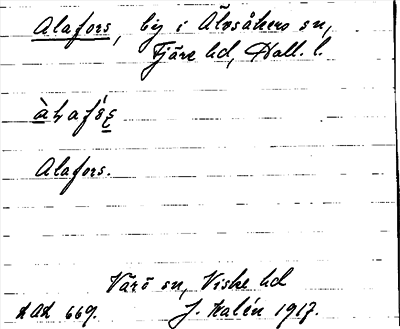 Alafors, by i Älvsåkers sn,
Fjäre hd, Hall. l.
Alafors.
Värö sn, Viske hd
LAL 669. J. Kalén 1917.